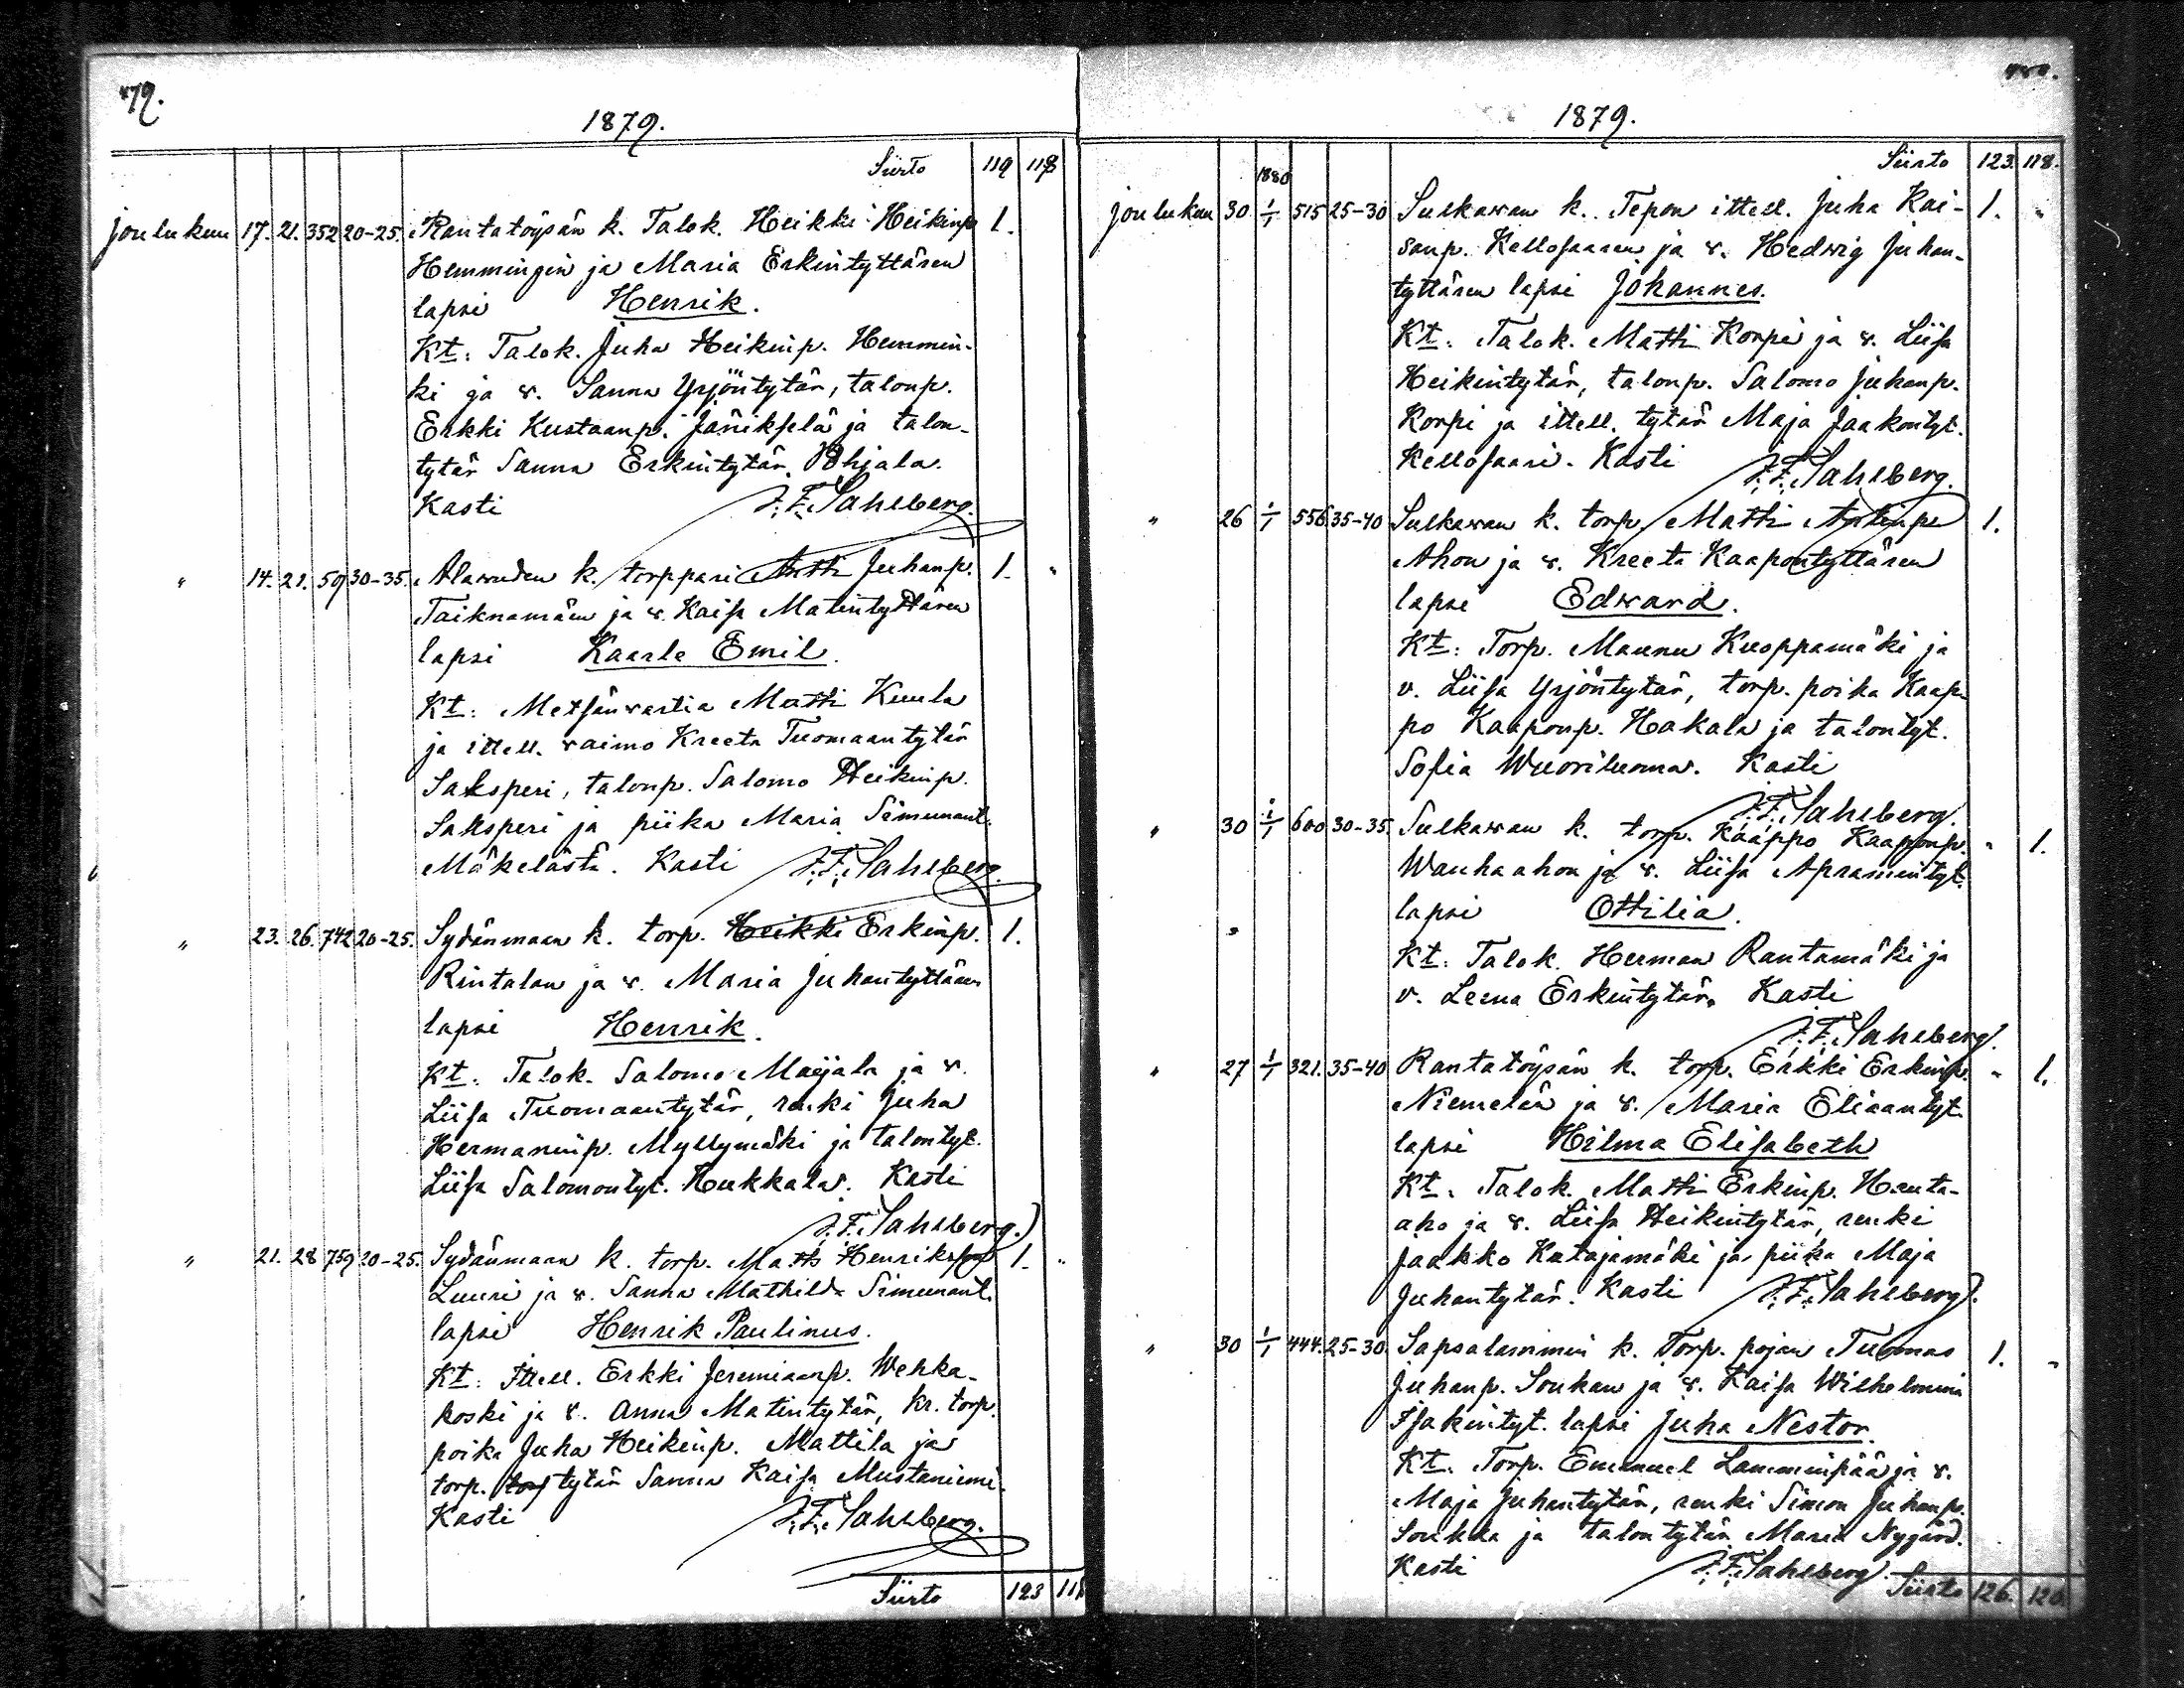 479.
1879.
Siirto 119 118
joulukuu 17. 21. 352 20-25. Rantatöysän k. Talok. Heikki Heikinp. 1.
Hemmingin ja Maria Erkintyttären
lapsi Henrik.
Kt: Talok. Juha Heikinp. Hemmin-
ki ja v. Sanna Yrjöntytär, talonp.
Erkki Kustaanp. Jänikselä ja talon-
tytär Sanna Erkintytär Pohjala.
Kasti J. F. Sahlberg.
" 14. 21. 59 30-35. Alawuden k. torppari Antti Juhanp. 1. "
Taiknamäen ja v. Kaisa Matintyttären
lapsi Kaarle Emil.
Kt: Metsänwartia Matti Kuula
ja ittell. waimo Kreeta Tuomaantytär
Saksperi, talonp. Salomo Heikinp.
Saksperi ja piika Maria Simunant.
Mäkelästä. Kasti J. F. Sahlberg.
" 23. 26. 742 20-25. Sydänmaan k. torp. Heikki Erkinp. 1.
Rintalan ja v. Maria Juhantyttären
lapsi Henrik.
Kt: Talok. Salomo Maijala ja v.
Liisa Tuomaantytär, renki Juha
Hermaninp. Myllymäki ja talontyt.
Liisa Salomontyt. Kukkala. Kasti
J. F. Sahlberg.
" 21. 28 759 20-25. Sydänmaan k. torp. Matts Henriksson 1. "
Luuri ja v. Sanna Mathilda Simunant.
lapsi Henrik Paulinus.
Kt: Ittell. Erkki Jeremiaanp. Wehka-
koski ja v. Anna Matintytär, kr. torp.
poika Juha Heikinp. Mattila ja
torp. tytär Sanna Kaisa Mustaniemi.
Kasti J. F. Sahlberg.
Siirto 123 118
1879.
Siirto 123. 118.
1880
joulukuu 30 1/1 515 25-30 Sulkawan k. Tepon ittell. Juha Kai-  1. "
sanp. Kellosaaren ja v. Hedwig Juhan-
tyttären lapsi Johannes.
Kt: Talok. Matti Korpi ja v. Liisa
Heikintytär, talonp. Salomo Juhanp.
Korpi ja ittell. tytär Maja Jaakontyt.
Kellosaari. Kasti J. F. Sahlberg.
" 26 1/1 556 35-40 Sulkawan k. torp. Matti Antinp. 1.
Ahon ja v. Kreeta Kaapontyttären
lapsi Edward.
Kt: Torp. Maunu Kuoppamäki ja
v. Liisa Yrjöntytär, torp. poika Kaap-
po Kaaponp. Hakala ja talontyt.
Sofia Wuoriluoma. Kasti
J. F. Sahlberg.
" 30 1/1 600 30-35. Sulkawan k. torp. Kaappo Kaaponp. " 1.
Wanhaahon ja v. Liisa Apramintyt.
lapsi Ottilia.
Kt: Talok. Herman Rantamäki ja
v. Leena Erkintytär. Kasti
J. F. Sahlberg.
" 27 1/1 321. 35-40 Rantatöysän k. torp. Erkki Erkinp. " 1.
Niemelän ja v. Maria Eliaantyt.
lapsi Hilma Elisabeth
Kt: Talok. Matti Erkinp. Hauta-
aho ja v. Liisa Heikintytär, renki
Jaakko Katajamäki ja piika Maja
Juhantytär. Kasti J. F. Sahlberg.
" 30 1/1 444. 25-30 Sapsalammin k. Torp. pojan Tuomas 1. "
Juhanp. Soukan ja v. Kaisa Wilhelmina
Isakintyt. lapsi Juha Nestor.
Kt: Torp. Emanuel Lamminpää ja v.
Maja Juhantytär, renki Simon Juhanp.
Soukka ja talon tytär Maria Nygård.
Kasti J. F. Sahlberg. Siirto 126. 120.